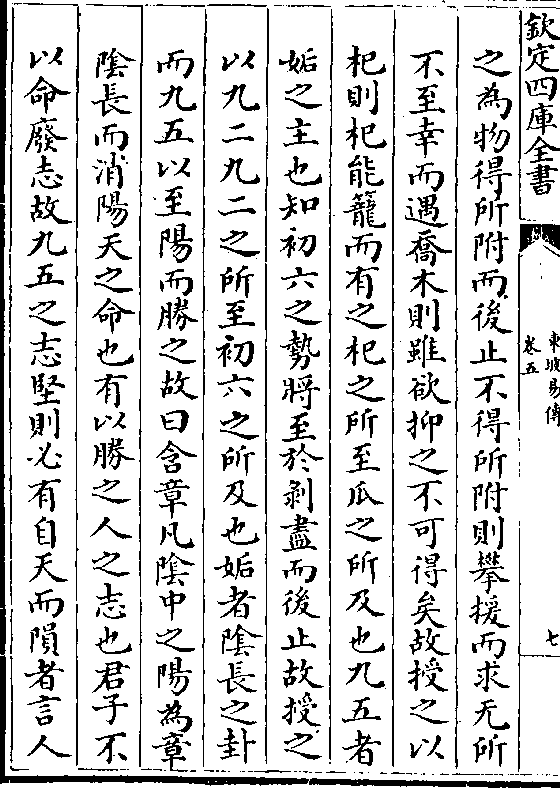 欽定四庫全書
東坡易傳
卷五
七
之為物得所附而後止不得所附則攀援而求无所
不至幸而遇喬木則雖欲抑之不可得矣故授之以
杞則杞能籠而有之杞之所至瓜之所及也九五者
姤之主也知初六之勢將至於剥盡而後止故授之
以九二九二之所至初六之所及也姤者陰長之卦
而九五以至陽而勝之故曰含章凡陰中之陽為章
陰長而消陽天之命也有以勝之人之志也君子不
以命廢志故九五之志堅則必有自天而隕者言人